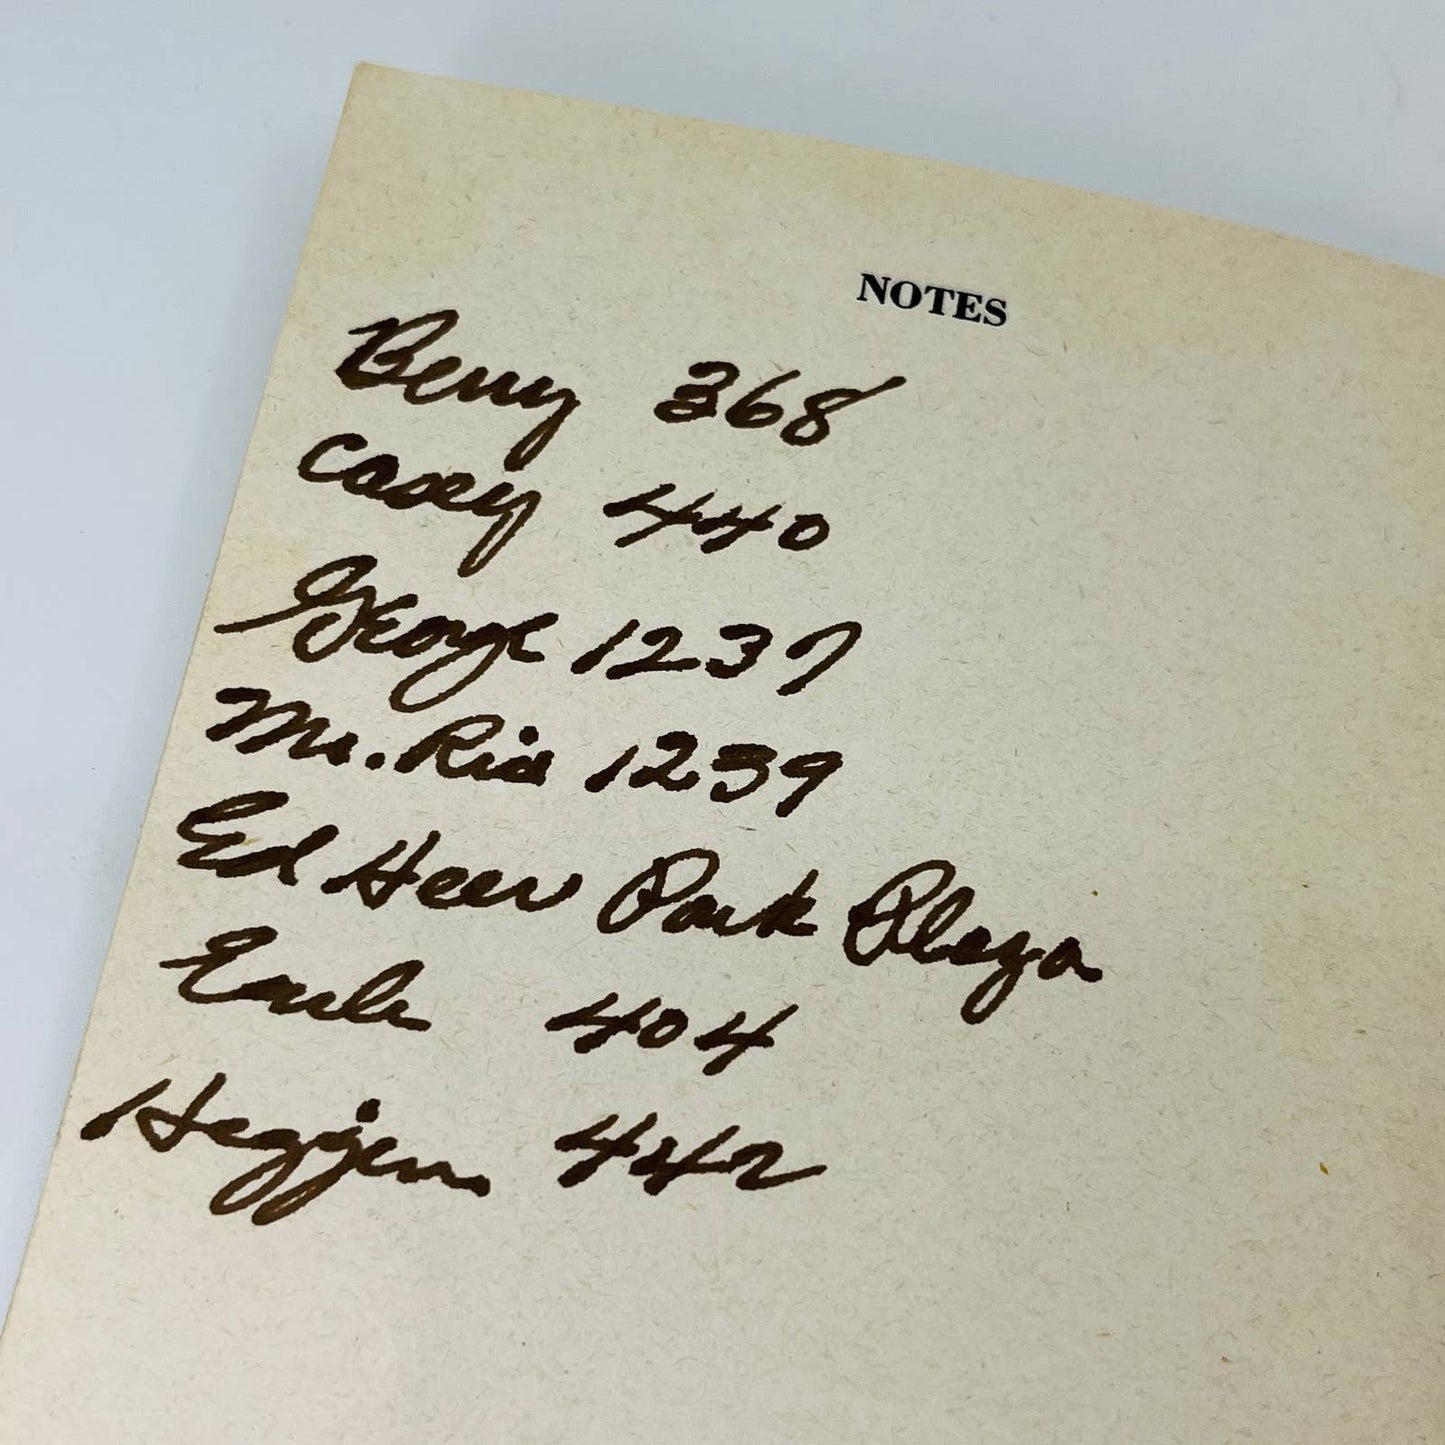 NOTES
Berry 368
Casey 440
George 1237
Mr. Ria 1239
Ed Heer Park Plaza
Earle 404
Heggen 442